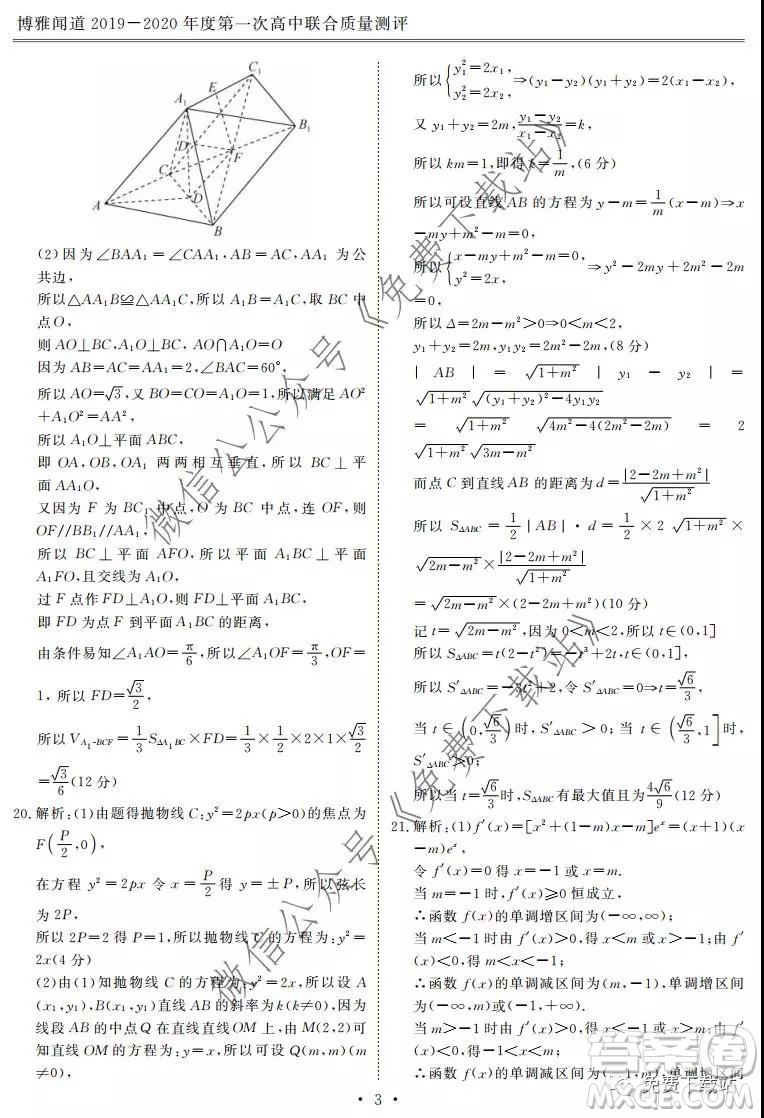 博雅闻道 2019－2020 年度第一次高中联合质量测评
C₁
E
A₁
B₁
D
F
C
A
D
B
(2)因为∠BAA₁=∠CAA₁,AB=AC,AA₁ 为公
共边,
所以△AA₁B≌△AA₁C,所以A₁B=A₁C,取 BC 中
点O,
则 AO⊥BC,A₁O⊥BC, AO∩A₁O=O
因为 AB=AC=AA₁=2,∠BAC=60°,
所以AO=√3,又 BO=CO=A₁O=1,所以满足 AO²
+A₁O²=AA²,
所以 A₁O⊥平面ABC,
即 OA,OB,OA₁ 两两相互垂直,所以 BC⊥平
面AA₁O,
又因为 F 为 BC₁ 中点,O 为 BC 中点,连 OF,则
OF//BB₁//AA₁,
所以 BC⊥平面 AFO,所以平面 A₁BC⊥平面
A₁FO,且交线为A₁O,
过 F 点作 FD⊥A₁O,则 FD⊥平面 A₁BC,
即 FD 为点 F 到平面 A₁BC 的距离,
由条件易知∠A₁AO=π/6,所以∠A₁OF=π/3,OF=
1,所以 FD=√3/2,
所以V_{A₁-BCF}=1/3 S_{ΔA₁BC}×FD=1/3×1/2×2×1×√3/2
=√3/6(12 分)
20.解析:(1)由题得抛物线 C:y²=2px(p>0)的焦点为
F(P/2,0),
在方程 y²=2px 令 x=P/2得 y=±P,所以弦长
为 2P,
所以 2P=2 得 P=1,所以抛物线 C 的方程为:y²=
2x(4 分)
(2)由(1)知抛物线 C 的方程为:y²=2x,所以设 A
(x₁,y₁),B(x₁,y₁)直线 AB 的斜率为k(k≠0),因为
线段 AB 的中点Q 在直线直线OM 上,由 M(2,2)可
知直线 OM 的方程为:y=x,所以可设 Q(m,m)(m
≠0),
所以{y₁²=2x₁, y₂²=2x₂, ⇒(y₁−y₂)(y₁+y₂)=2(x₁−x₂),
又 y₁+y₂=2m,(y₁−y₂)/(x₁−x₂)=k,
所以 km=1,即得k=1/m,(6 分)
所以可设直线 AB 的方程为 y−m=1/m(x−m)⇒x
−my+m²−m=0,
所以{x−my+m²−m=0, y²=2x ⇒y²−2my+2m²−2m
=0,
所以 Δ=2m−m²>0⇒0<m<2,
y₁+y₂=2m,y₁y₂=2m²−2m,(8 分)
| AB | = √(1+m²) | y₁ − y₂ | =
√(1+m²)√((y₁+y₂)²−4y₁y₂)
= √(1+m²) √(4m²−4(2m²−2m)) = 2
√(1+m²)√(3m−m²)
而点 C 到直线 AB 的距离为d=|2−2m+m²|/√(1+m²)
所以 S_{ΔABC}=1/2|AB|·d=1/2×2√(1+m²)×
√(2m−m²)×|2−2m+m²|/√(1+m²)
=√(2m−m²)×(2−2m+m²)(10 分)
记 t=√(2m−m²),因为 0<m<2,所以 t∈(0,1]
所以 S_{ΔABC}=t(2−t²)=−t³+2t,t∈(0,1]
所以 S′_{ΔABC}=−3t²+2,令 S′_{ΔABC}=0⇒t=√6/3,
当 t∈(0,√6/3)时,S′_{ΔABC}>0;当 t∈(√6/3,1]时,
S′_{ΔABC}>0;
所以当 t=√6/3时,S_{ΔABC}有最大值且为4√6/9(12 分)
21.解析:(1)f′(x)=[x²+(1−m)x−m]eˣ=(x+1)(x
−m)eˣ,
令 f′(x)=0 得 x=−1 或 x=m.
当 m=−1 时,f′(x)≥0 恒成立,
∴函数 f(x)的单调增区间为(−∞,∞);
当 m<−1 时由 f′(x)>0,得 x<m 或 x>−1,由
f′(x)<0,得 m<x<−1,
∴函数 f(x)的单调减区间为(m,−1),单调增区间
为(−∞,m)或(−1,∞);
当 m>−1 时由 f′(x)>0,得 x<−1 或 x>m,由
f′(x)<0,得−1<x<m,
∴函数 f(x)的单调减区间为(−1,m),单调增区间
• 3 •
微信公众号《免费下载站》
微信公众号《免费下载站》
答案圈
免费下载站